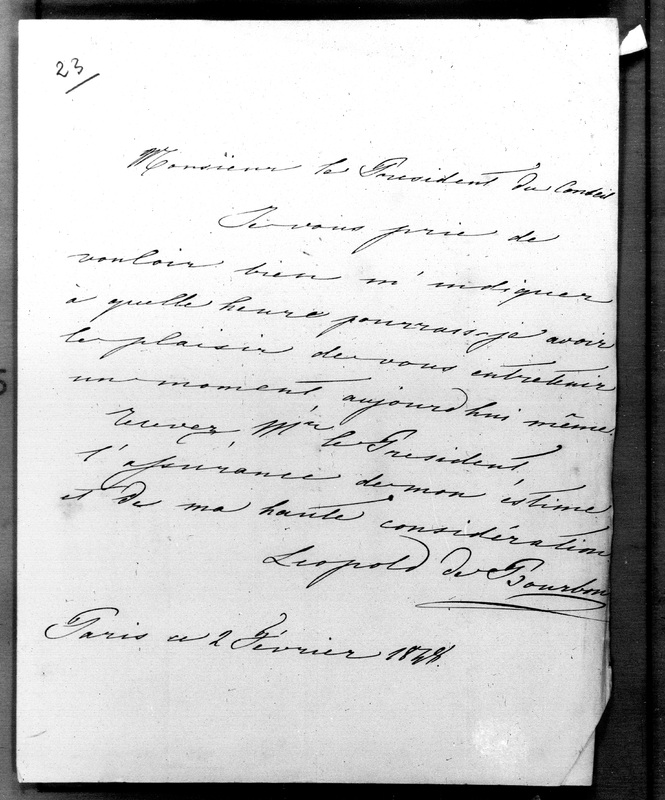 23/
Monsieur le President du Conseil
Je vous prie de
vouloir bien m'indiquer
à quelle heure pourrais-je avoir
le plaisir de vous entretenir
un moment aujourd'hui même.
Recevez Mr le President
l'assurance de mon estime
et de ma haute considération
Leopold de Bourbon
Paris ce 2 Février 1848.